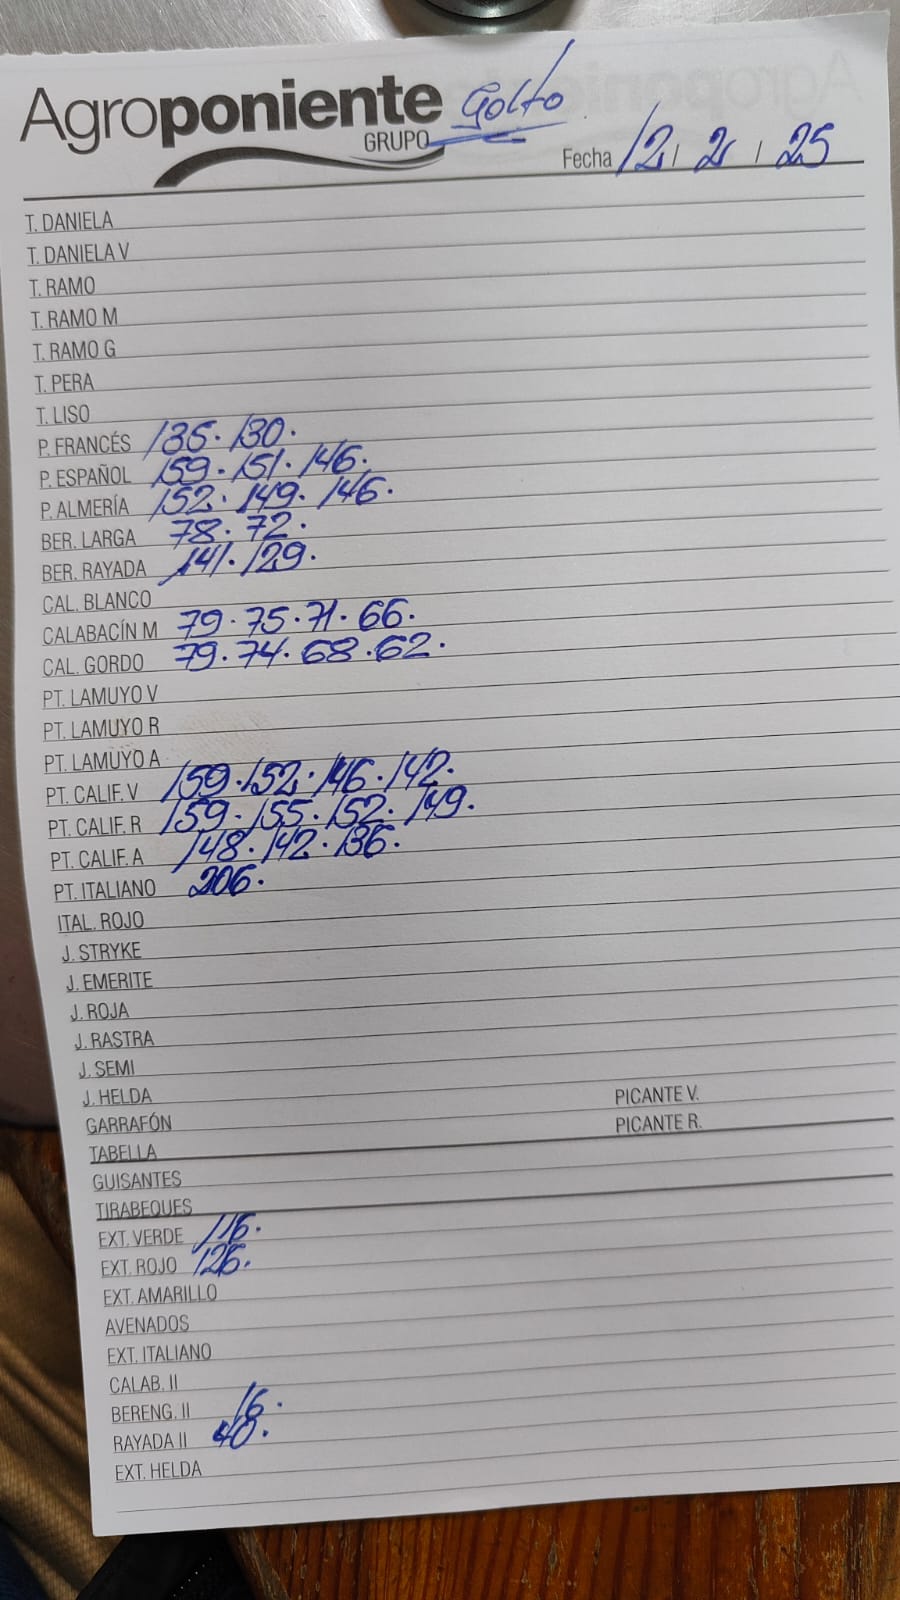 Agroponiente Golfo
GRUPO
Fecha 12 / 2 / 25
T. DANIELA
T. DANIELA V
T. RAMO
T. RAMO M
T. RAMO G
T. PERA
T. LISO
P. FRANCÉS 135. 130.
P. ESPAÑOL 159. 151. 146.
P. ALMERÍA 152. 149. 146.
BER. LARGA 78. 72.
BER. RAYADA 141. 129.
CAL. BLANCO
CALABACÍN M 79. 75. 71. 66.
CAL. GORDO 79. 74. 68. 62.
PT. LAMUYO V
PT. LAMUYO R
PT. LAMUYO A
PT. CALIF. V 159. 152. 146. 142.
PT. CALIF. R 159. 155. 152. 149.
PT. CALIF. A 148. 142. 136.
PT. ITALIANO 206.
ITAL. ROJO
J. STRYKE
J. EMERITE
J. ROJA
J. RASTRA
J. SEMI
J. HELDA PICANTE V.
GARRAFÓN PICANTE R.
TABELLA
GUISANTES
TIRABEQUES
EXT. VERDE 116.
EXT. ROJO 126.
EXT. AMARILLO
AVENADOS
EXT. ITALIANO
CALAB. II
BERENG. II 16.
RAYADA II 40.
EXT. HELDA